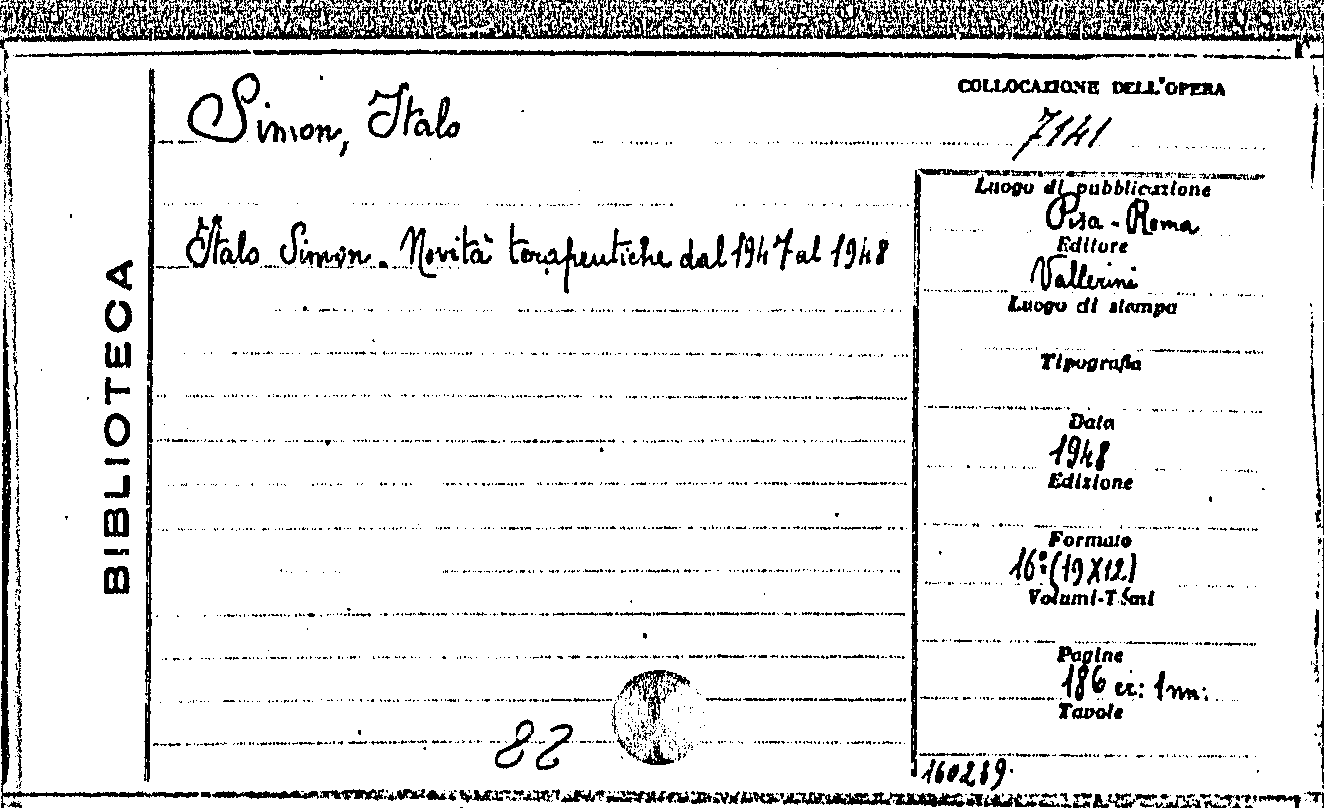 BIBLIOTECA
Simon, Italo
COLLOCAZIONE DELL'OPERA
7141
Italo Simon. Novità terapeutiche dal 1947 al 1948
Luogo di pubblicazione
Pisa - Roma
Editore
Vallerini
Luogo di stampa
Tipografia
Data
1948
Edizione
Formato
16º (19X12)
Volumi-Tomi
Pagine
186 cc: 1nn:
Tavole
82
160289.